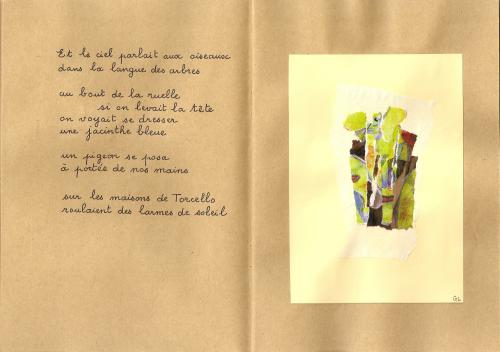 Et le ciel parlait aux oiseaux
dans la langue des arbres
au bout de la ruelle
si on levait la tête
on voyait se dresser
une jacinthe bleue
un pigeon se posa
à portée de nos mains
sur les maisons de Torcello
roulaient des larmes de soleil
GL